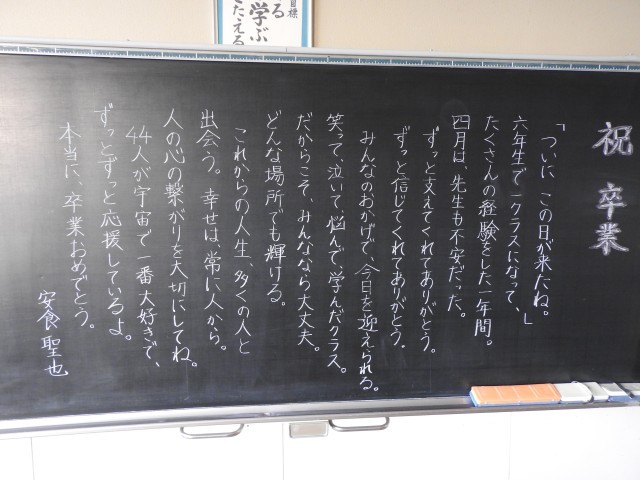 目標
る
学ぶ
きたえる
祝 卒業
「ついに、この日が来たね。」
六年生で一クラスになって、
たくさんの経験をした一年間。
四月は、先生も不安だった。
ずっと支えてくれてありがとう。
ずっと信じてくれてありがとう。
みんなのおかげで、今日を迎えられる。
笑って、泣いて、悩んで、学んだクラス。
だからこそ、みんななら大丈夫。
どんな場所でも輝ける。
これからの人生、多くの人と
出会う。幸せは、常に人から。
人の心の繋がりを大切にしてね。
44人が宇宙で一番大好きで、
ずっとずっと応援しているよ。
本当に、卒業おめでとう。
安食 聖也